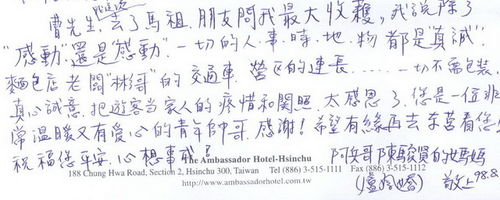 曹先生, 去了馬祖. 朋友問我最大收穫, 我說除了
"感動"還是"感動". 一切的人.事.時.地.物都是真誠
麵包店老闆"林哥"的交通車. 營區的連長……一切不需包裝.
真心誠意. 把遊客當家人的疼惜和關照. 太感恩了. 您是一位非
常溫暖又有愛心的青年帥哥. 感謝! 希望有緣再去东莒看您!
祝福您平安. 心想事成!
阿兵哥陳駿賢的媽媽
敬上98.8
The Ambassador Hotel-Hsinchu
188 Chung Hwa Road, Section 2, Hsinchu 300, Taiwan Tel (886) 3-515-1111 Fax (886) 3-515-1112
http://www.ambassadorhotel.com.tw